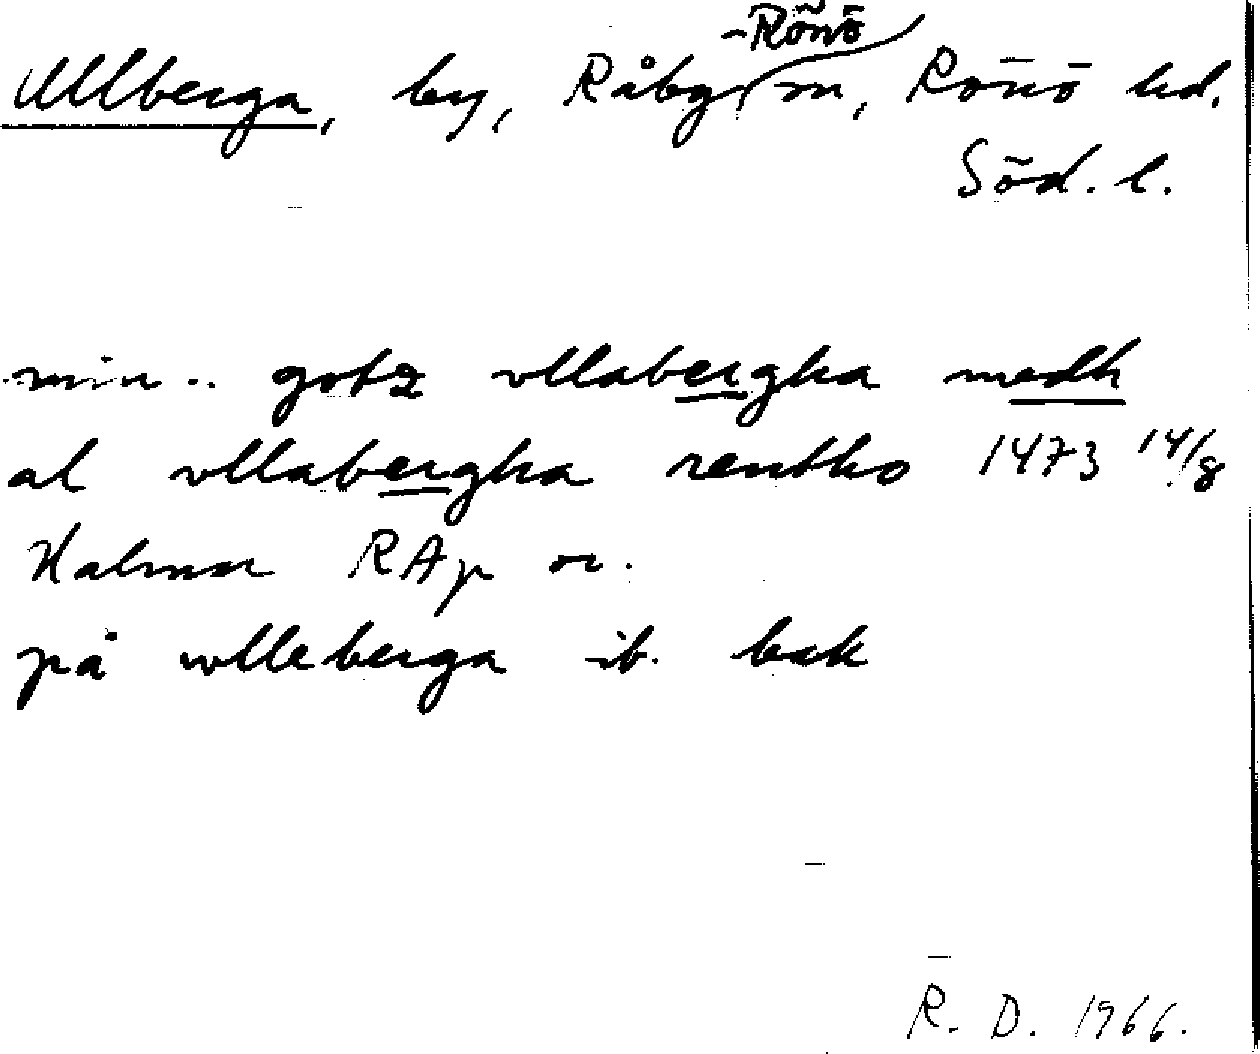 Ullberga, by, Råby-Rönö sn, Rönö hd.
Söd. l.
min .. gotz vllabergha medh
al vllabergha rentho 1473 14/8
Kalmar RAp or.
på wlleberga ib. bak
R. D. 1966.